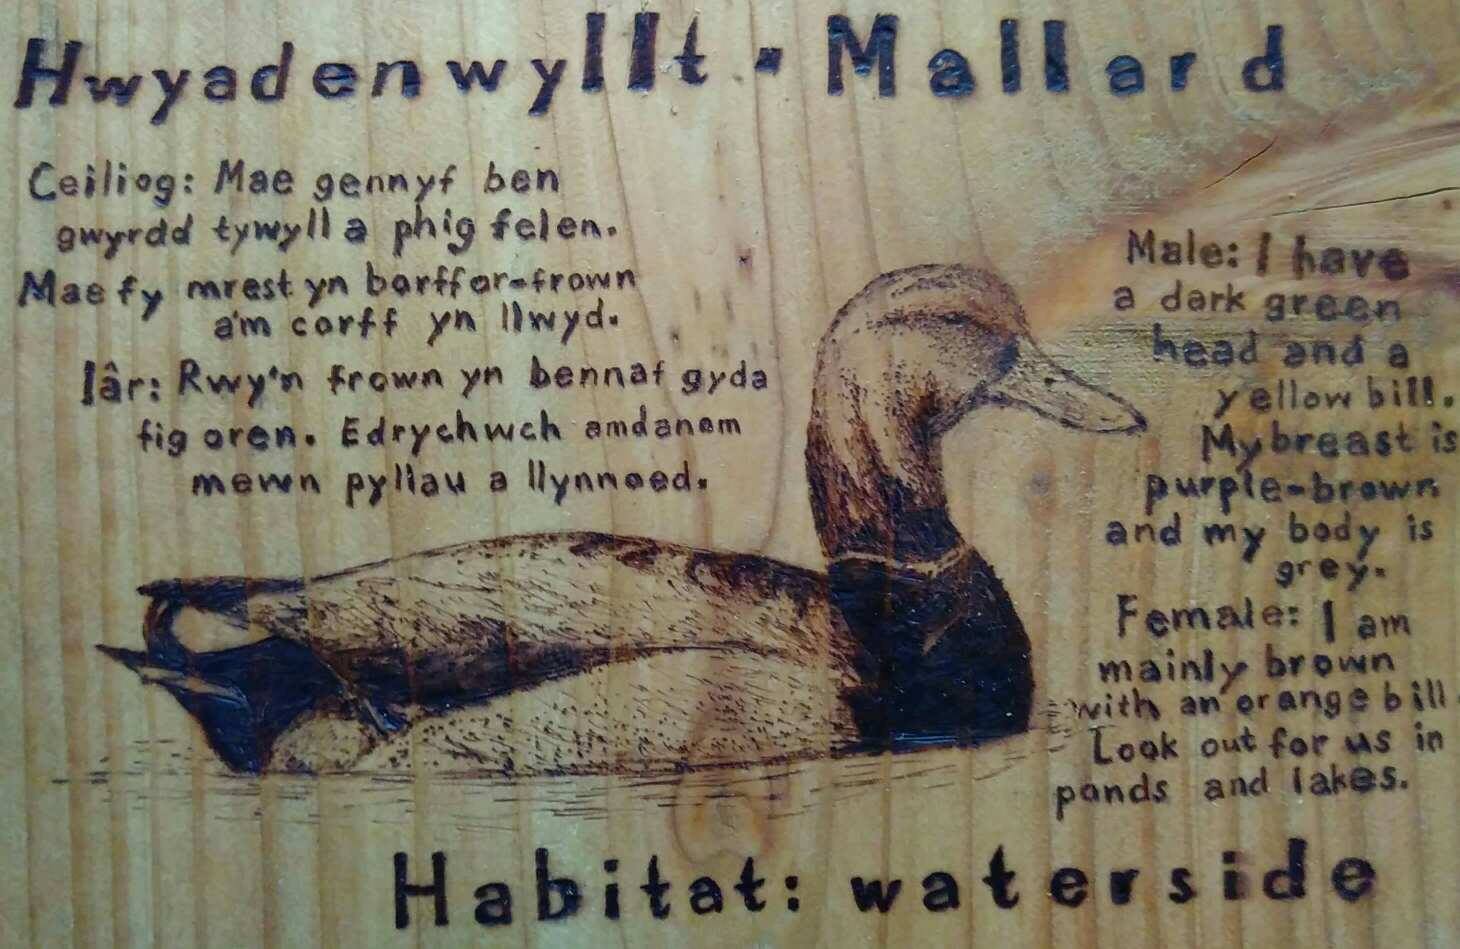 Hwyadenwyllt · Mallard
Ceiliog: Mae gennyf ben
gwyrdd tywyll a phig felen.
Mae fy mrest yn borffor-frown
a'm corff yn llwyd.
Iâr: Rwy'n frown yn bennaf gyda
fig oren. Edrychwch amdanom
mewn pyllau a llynnoed.
Male: I have
a dark green
head and a
yellow bill.
My breast is
purple-brown
and my body is
grey.
Female: I am
mainly brown
with an orange bill.
Look out for us in
ponds and lakes.
Habitat: waterside